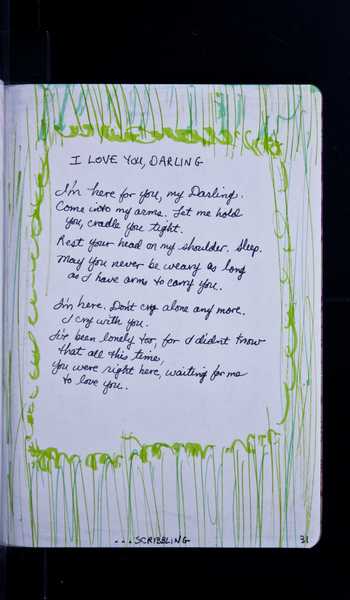 I LOVE YOU, DARLING
I'm here for you, my Darling.
Come into my arms. Let me hold
you, cradle you tight.
Rest your head on my shoulder. Sleep.
May you never be weary as long
as I have arms to carry you.
I'm here. Don't cry alone any more.
I cry with you.
I've been lonely too, for I didn't know
that all this time,
you were right here, waiting for me
to love you.
...SCRIBBLING
31